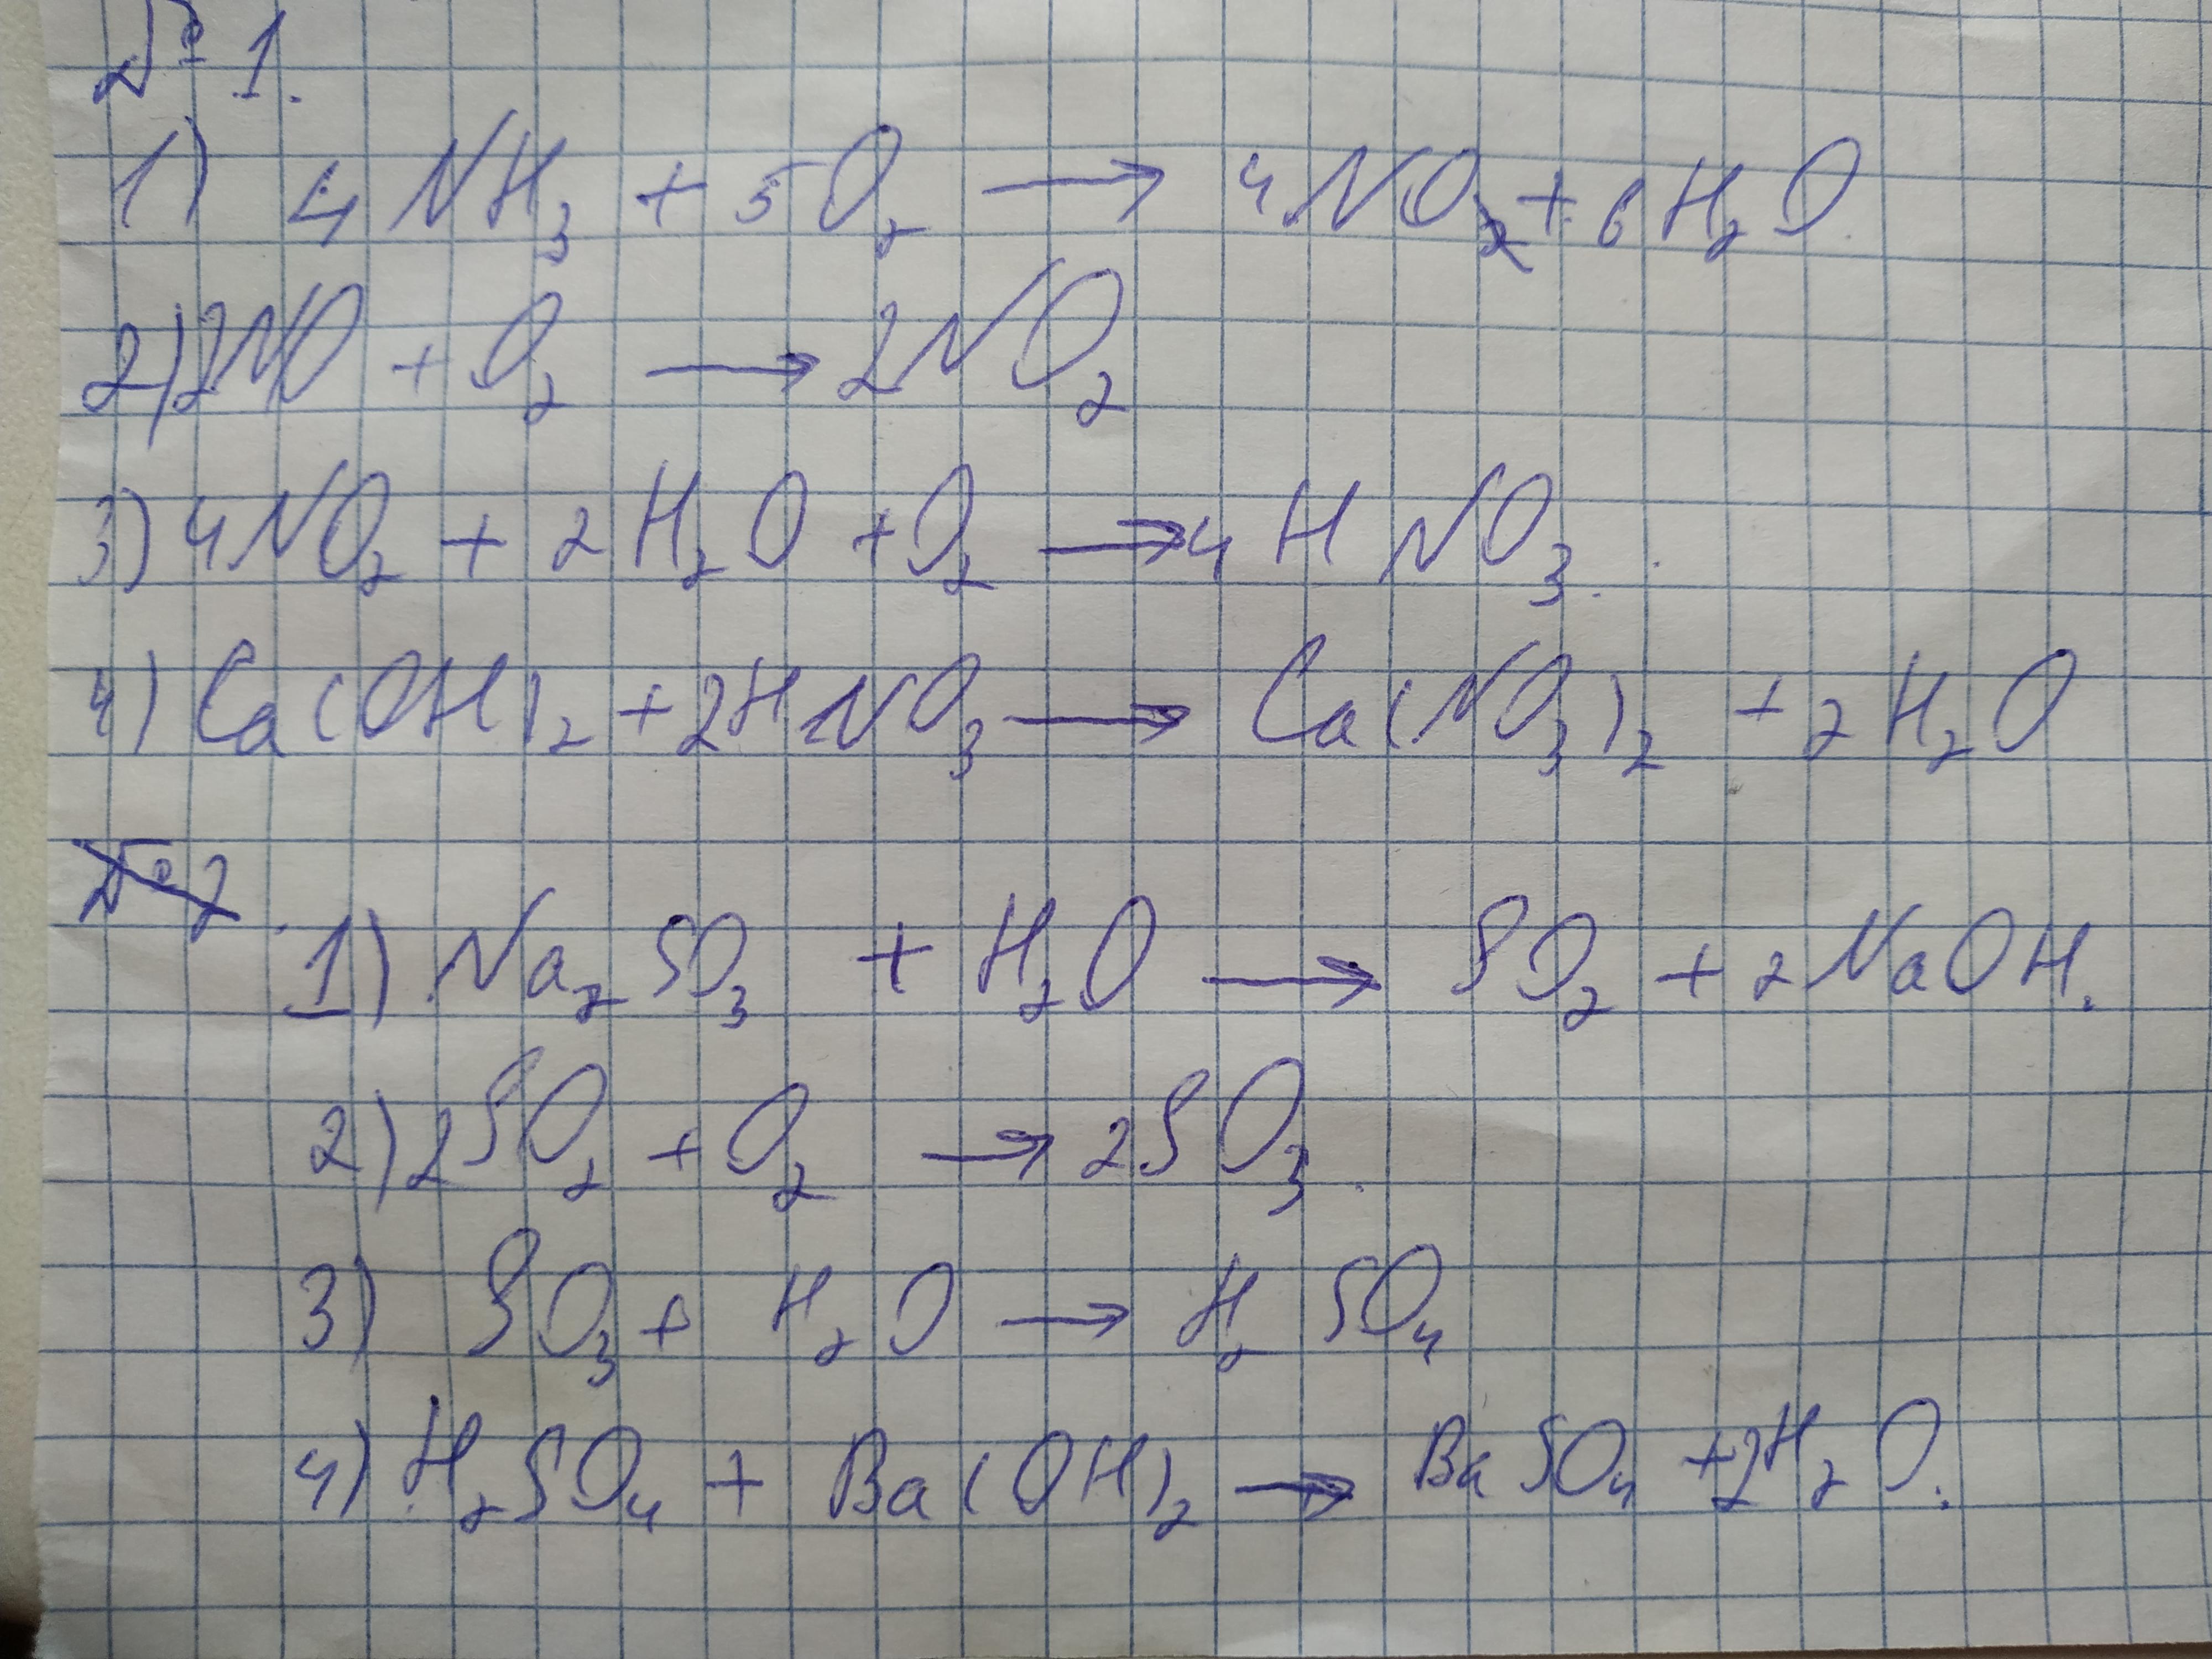 № 1.
1) 4NH₃ + 5O₂ → 4NO + 6H₂O
2) 2NO + O₂ → 2NO₂
3) 4NO₂ + 2H₂O + O₂ → 4HNO₃.
4) Ca(OH)₂ + 2HNO₃ → Ca(NO₃)₂ + 2H₂O
1) Na₂SO₃ + H₂O → SO₂ + 2NaOH.
2) 2SO₂ + O₂ → 2SO₃.
3) SO₃ + H₂O → H₂SO₄
4) H₂SO₄ + Ba(OH)₂ → BaSO₄ + 2H₂O.